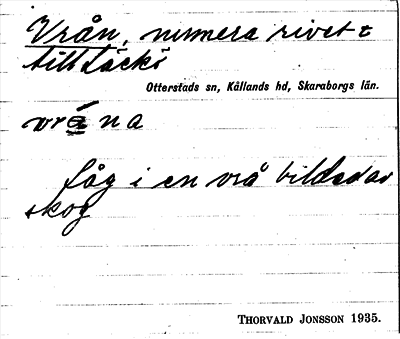 Vrån, numera rivet t
till Läckö
Otterstads sn, Kållands hd, Skaraborgs län.
vrǻna
låg i en vrå bildad av
skog
THORVALD JONSSON 1935.